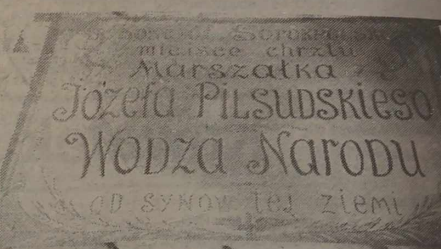 miejsce chrztu
Marszałka
Józefa Piłsudskiego
Wodza Narodu
od synów tej ziemi